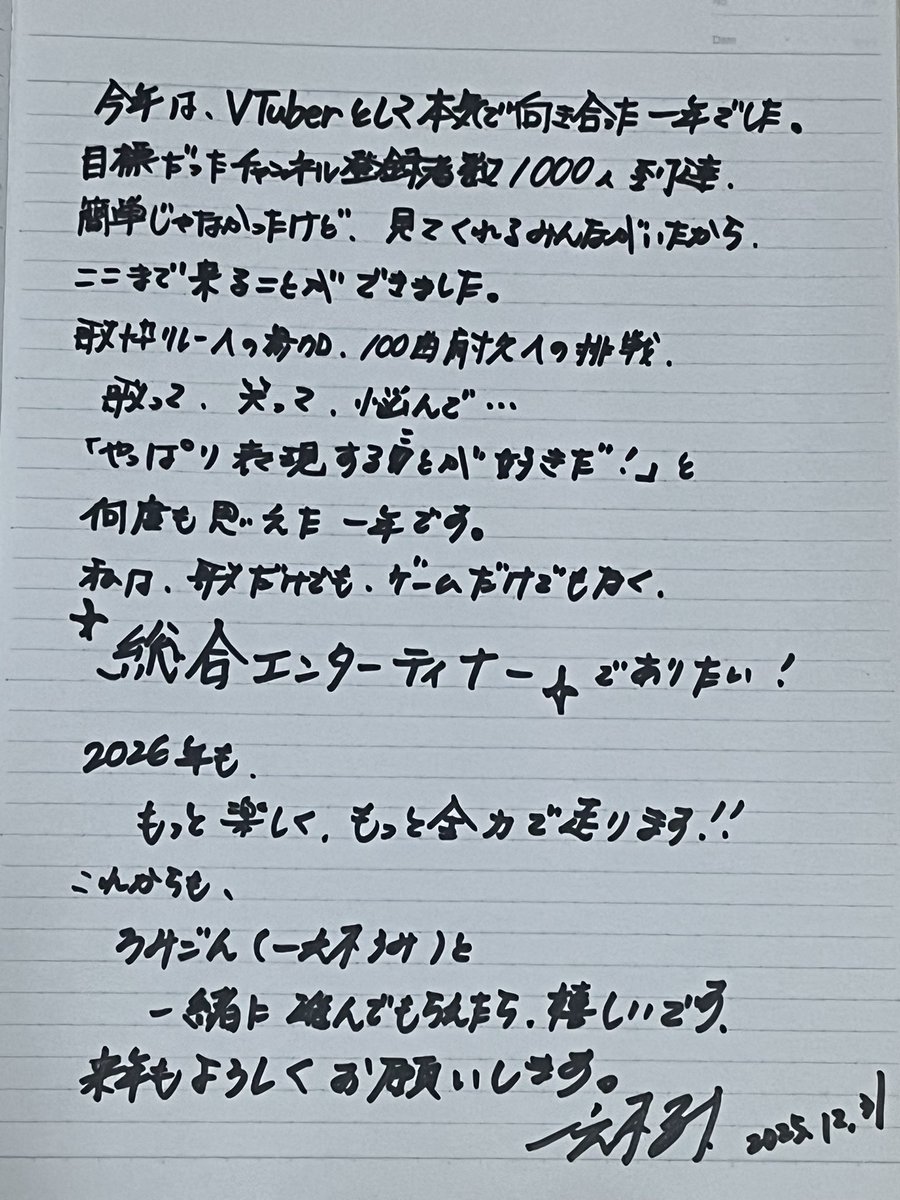 今年は、VTuberとして本気で向き合った一年でした。
目標だったチャンネル登録者数1000人到達、
簡単じゃなかったけど、見てくれるみんながいたから、
ここまで来ることができました。
歌枠リレーへの参加、100曲耐久への挑戦、
歌って、笑って、悩んで…
「やっぱり表現することが好きだ!」と
何度も思えた一年です。
私は、歌だけでも、ゲームだけでもなく、
総合エンターティナーでありたい!
2026年も、
もっと楽しく、もっと全力で走ります!!
これからも、
うみごん(一六不うみ)と
一緒に進んでもらえたら、嬉しいです。
来年もよろしくお願いします。
2025.12.31